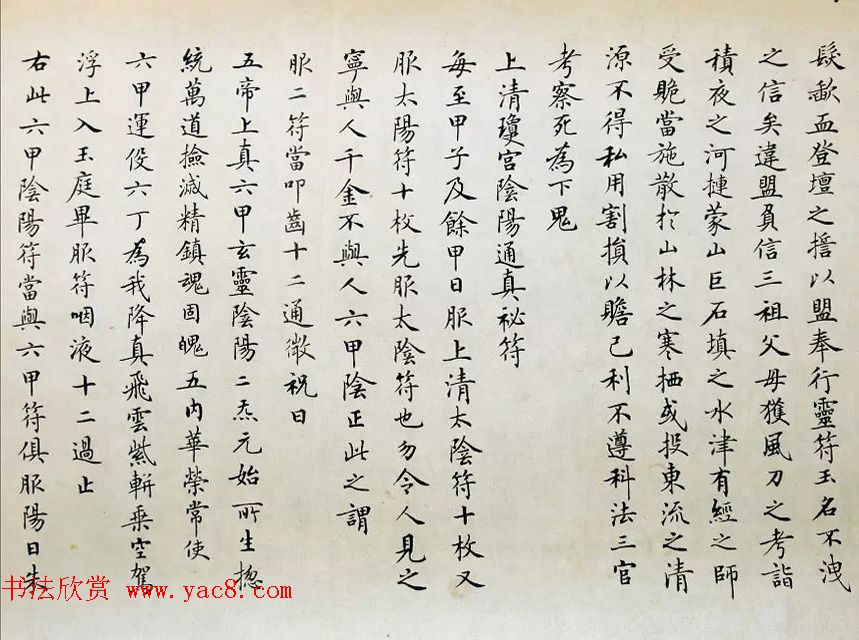 髮歃血登壇之誓以盟奉行靈符玉名不洩
之信矣違盟負信三祖父母獲風刀之考詣
積夜之河揵蒙山巨石填之水津有經之師
受賍當施散於山林之寒栖或投東流之清
源不得私用割損以贍己利不遵科法三官
考察死為下鬼
上清瓊宮陰陽通真祕符
每至甲子及餘甲日服上清太陰符十枚又
服太陽符十枚先服太陰符也勿令人見之
寧與人千金不與人六甲陰正此之謂
服二符當叩齒十二通微祝曰
五帝上真六甲玄靈陰陽二炁元始所生揔
統萬道撿滅精鎮魂固魄五内華榮常使
六甲運役六丁為我降真飛雲紫軿乗空駕
浮上入玉庭畢服符咽液十二過止
右此六甲陰陽符當與六甲符俱服陽日朱
书法欣赏 www.yac8.com